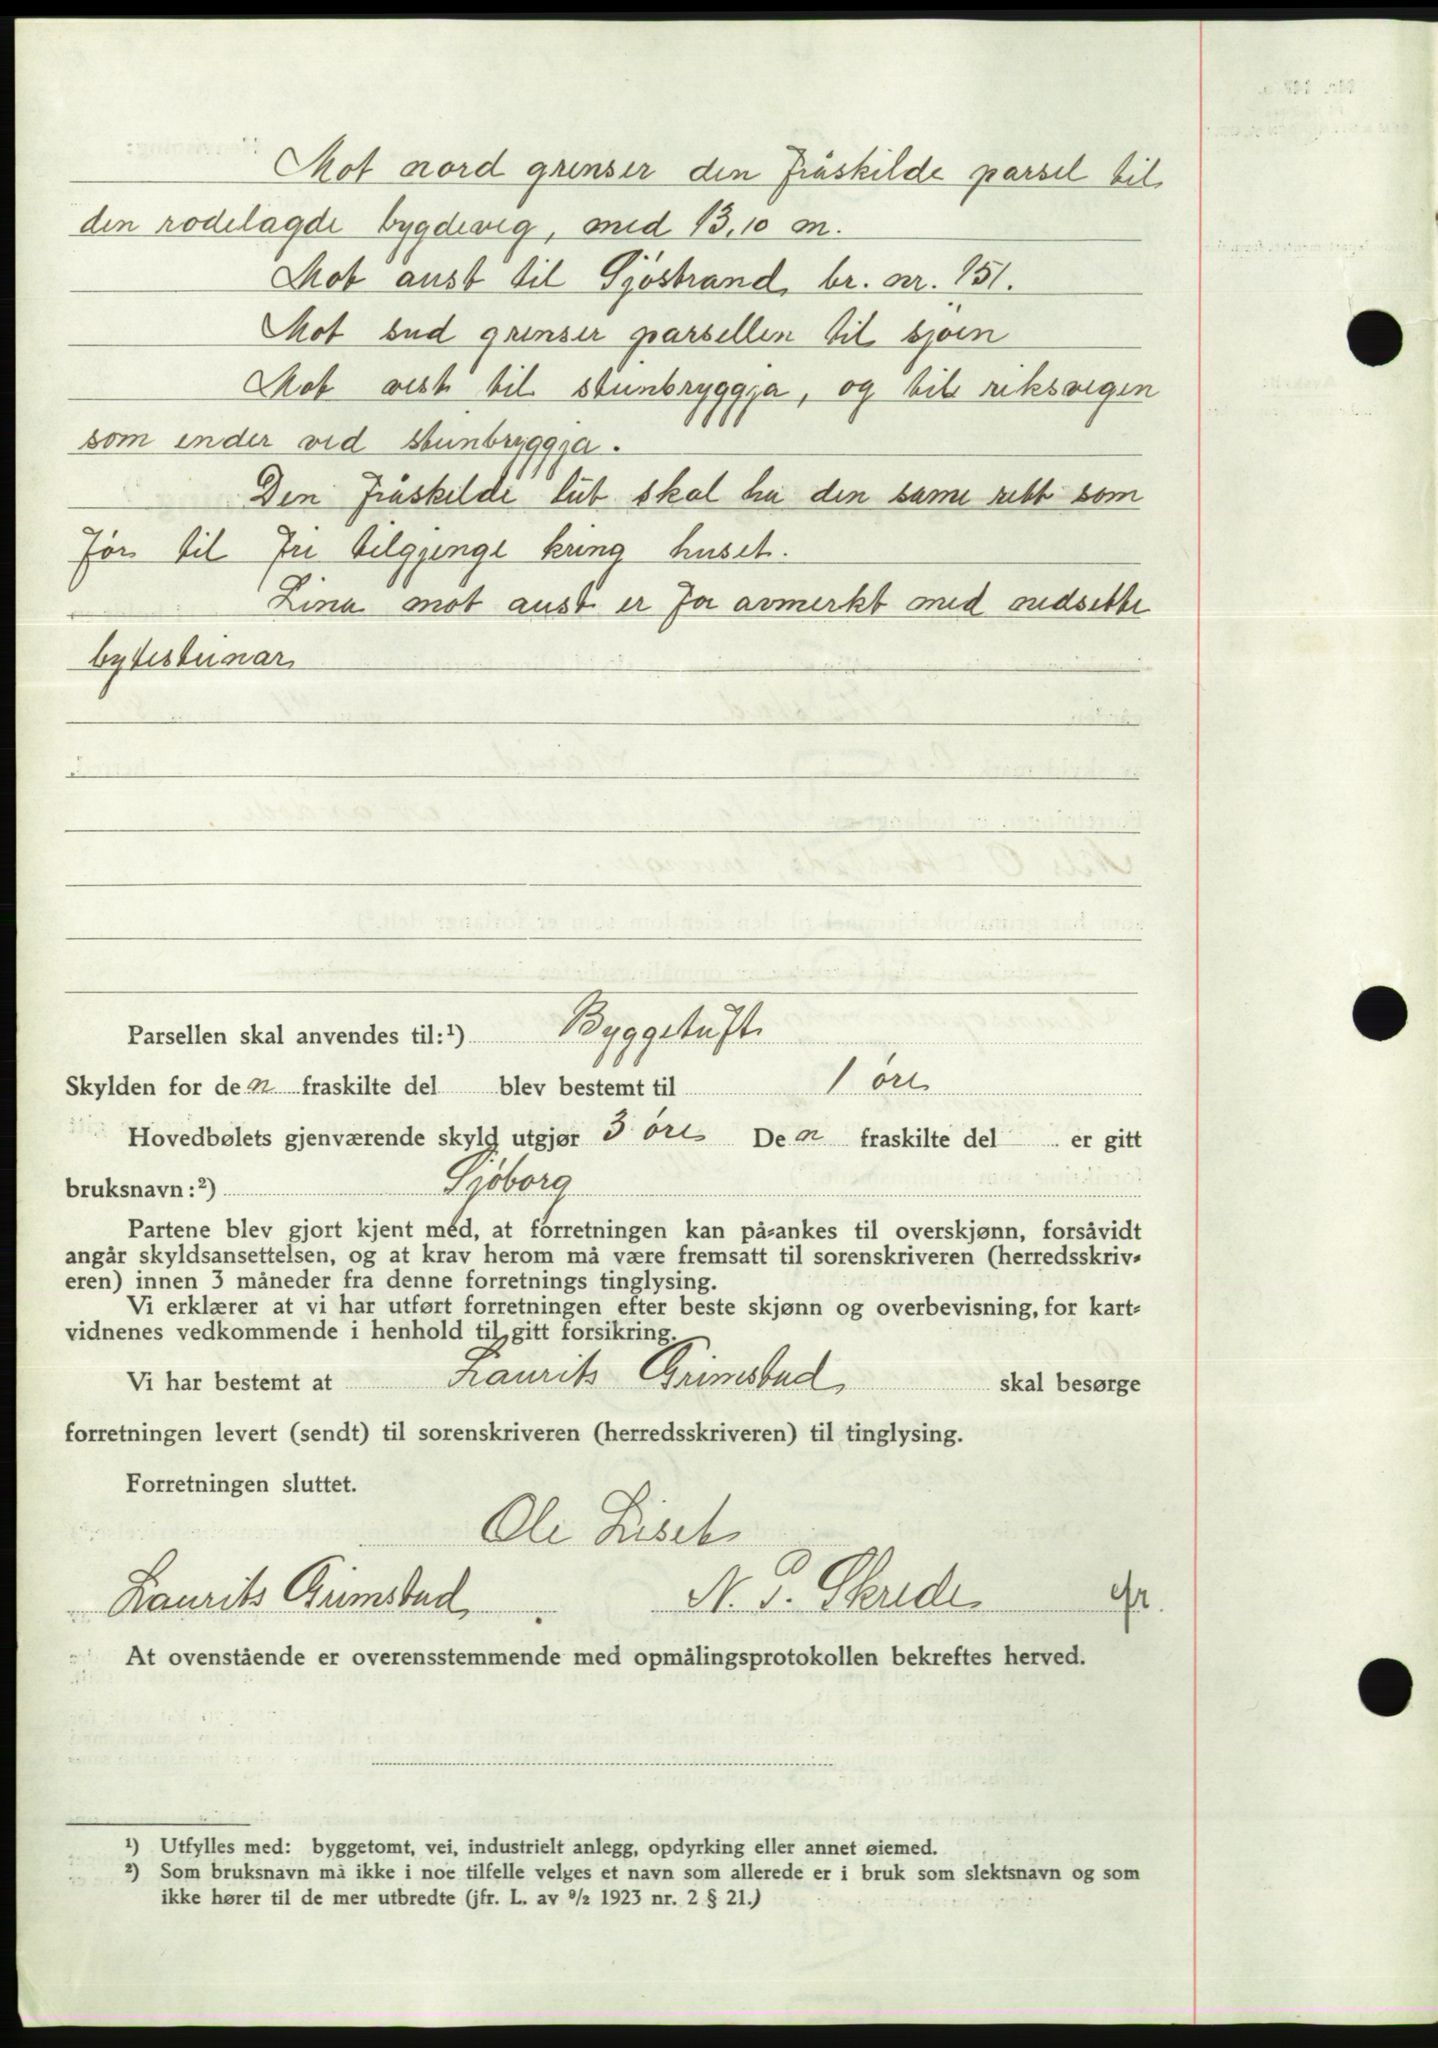 Mot nord grenser den fråskilde parsel til
den rodelagde bygdeveg, med 13,10 m.
Mot aust til Sjøstrand br. nr. 151.
Mot sud grenser parsellen til sjøen
Mot vest til steinbryggja, og til riksvegen
som ender ved steinbryggja.
Den fråskilde lut skal ha den same rett som
før til fri tilgjenge kring huset.
Lina mot aust er før avmerkt med nedsette
bytesteinar
Parsellen skal anvendes til:¹) Byggetuft
Skylden for den fraskilte del blev bestemt til 1 øre
Hovedbølets gjenværende skyld utgjør 3 øre Den fraskilte del er gitt
bruksnavn:²) Sjøborg
Partene blev gjort kjent med, at forretningen kan på-ankes til overskjønn, forsåvidt
angår skyldsansettelsen, og at krav herom må være fremsatt til sorenskriveren (herredsskriv-
eren) innen 3 måneder fra denne forretnings tinglysing.
Vi erklærer at vi har utført forretningen efter beste skjønn og overbevisning, for kart-
vidnenes vedkommende i henhold til gitt forsikring.
Vi har bestemt at Laurits Grimstad skal besørge
forretningen levert (sendt) til sorenskriveren (herredsskriveren) til tinglysing.
Forretningen sluttet.
Ole Liset
Laurits Grimstad N. P. Skrede
At ovenstående er overensstemmende med opmålingsprotokollen bekreftes herved.
¹) Utfylles med: byggetomt, vei, industrielt anlegg, opdyrking eller annet øiemed.
²) Som bruksnavn må ikke i noe tilfelle velges et navn som allerede er i bruk som slektsnavn og som
ikke hører til de mer utbredte (jfr. L. av ⁹/₂ 1923 nr. 2 § 21.)